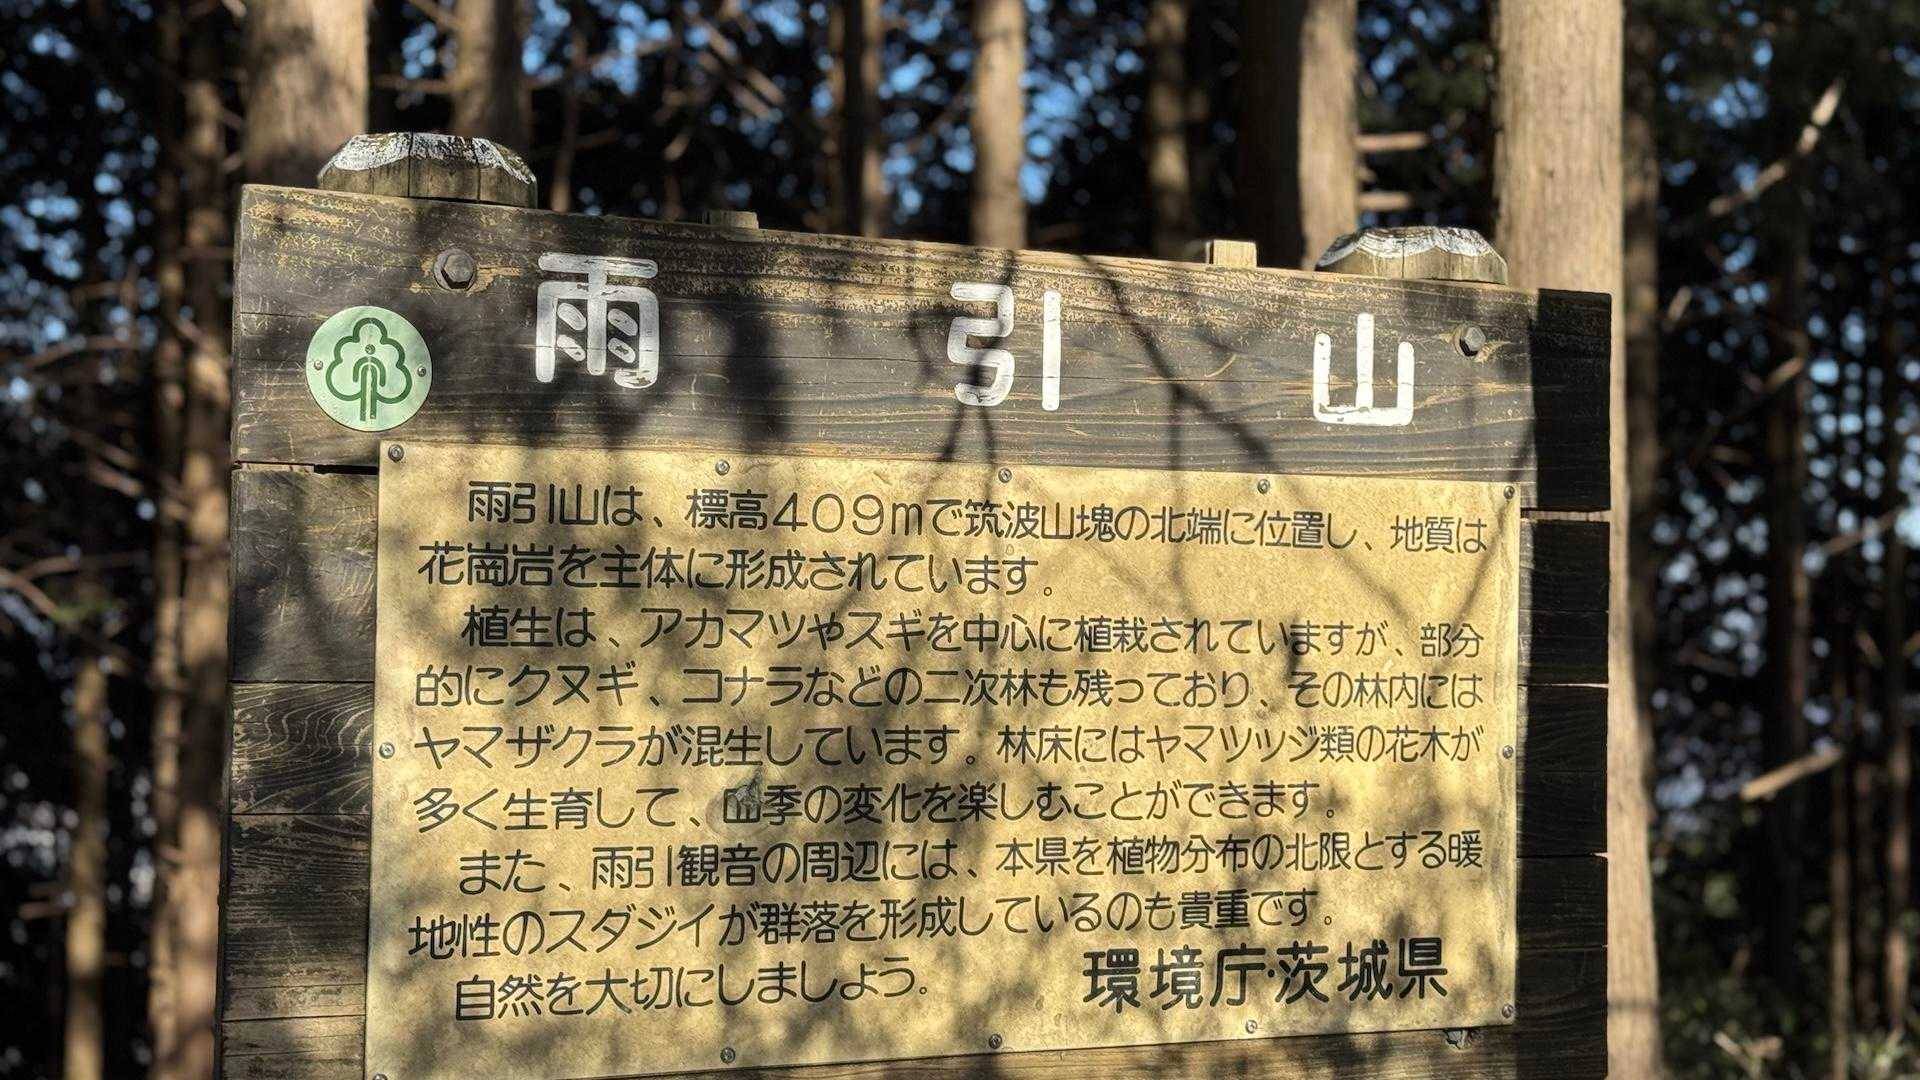 雨引山
雨引山は、標高409mで筑波山塊の北端に位置し、地質は
花崗岩を主体に形成されています。
植生は、アカマツやスギを中心に植栽されていますが、部分
的にクヌギ、コナラなどの二次林も残っており、その林内には
ヤマザクラが混生しています。林床にはヤマツツジ類の花木が
多く生育して、四季の変化を楽しむことができます。
また、雨引観音の周辺には、本県を植物分布の北限とする暖
地性のスダジイが群落を形成しているのも貴重です。
自然を大切にしましょう。
環境庁・茨城県